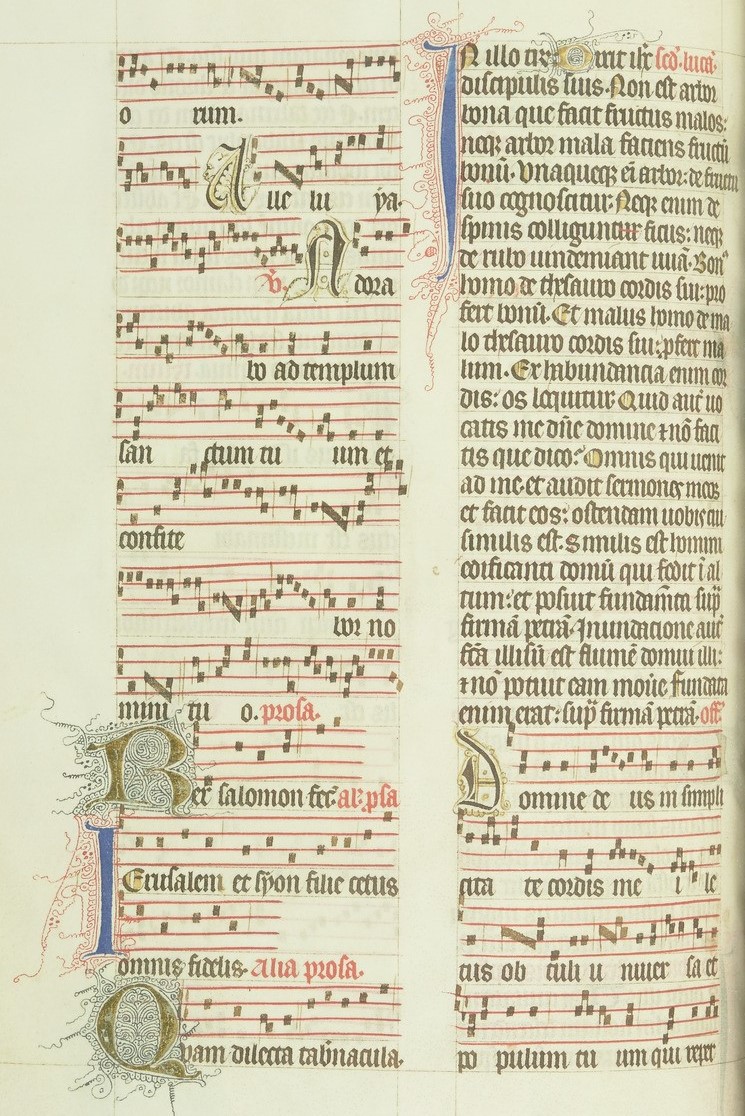 o rum.
Alle lu ya.
V. Adora
bo ad templum
san ctum tu um et
confite
bor no
mini tu o. prosa.
Rex salomon fec. al. psa
Ierusalem et syon filie cetus
omnis fidelis. Alia prosa.
Quam dilecta tabnacula.
IN illo tpr: Dixit ihc secd. lucā.
discipulis suis. Non est arbor
bona que facit fructus malos:
neqz arbor mala faciens fructū
bonū. Vnaqueqz eī arbor: de fructu
suo cognoscitur. Neqz enim de
spinis colligunt ficus: neqz
de rubo uindemiant uuā. Bonꝰ
homo de thesauro cordis sui: pro
fert bonū. Et malus homo de ma
lo thesauro cordis sui: pfert ma
lum. Ex habundancia enim cor
dis: os loquitur. Quid aut uo
catis me dñe domine et nō faci
tis que dico? Omnis qui uenit
ad me et audit sermones meos
et facit eos: ostendam uobis cui
similis est. Similis est homini
edificanti domū qui fodit ī al
tum: et posuit fundamta sup
firmā petrā. Inundacione aut
fcā illisū est flumē domui illi:
et nō potuit eam mouē. fundata
enim erat: sup firmā petrā. off
Domine de us in simpli
cita te cordis me i le
tus ob tuli u niuer sa et
po pulum tu um qui reper